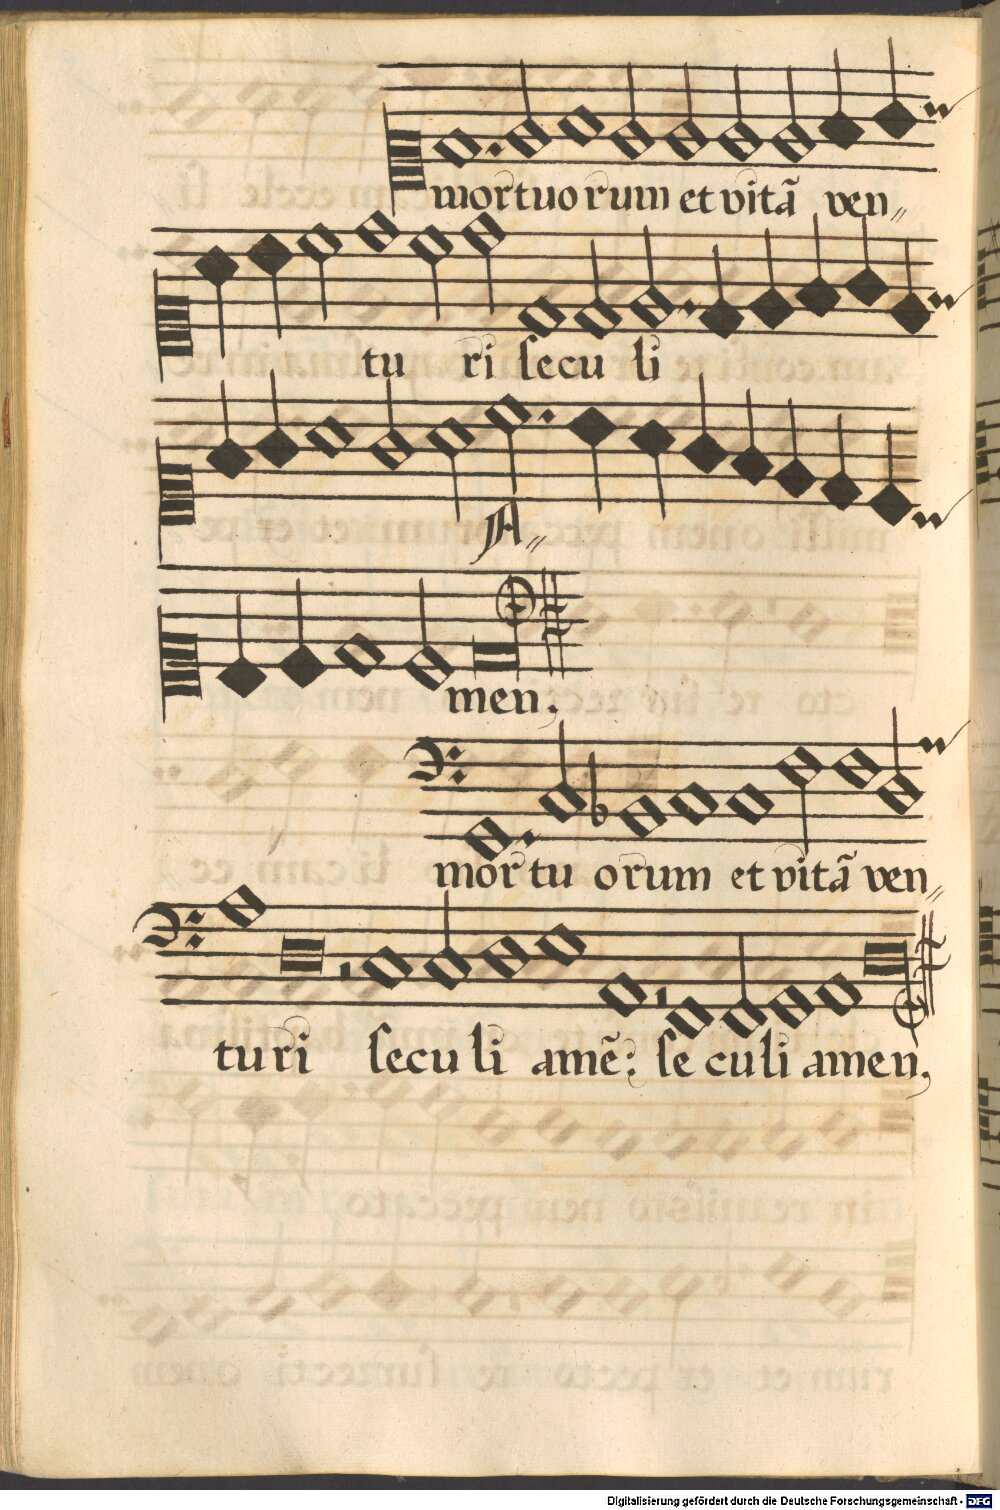 mortuorum et vitā ven„
tu ri secu li
A„
men,
mortu orum et vitā ven„
turi secu li amē: se culi amen,
Digitalisierung gefördert durch die Deutsche Forschungsgemeinschaft - DFG